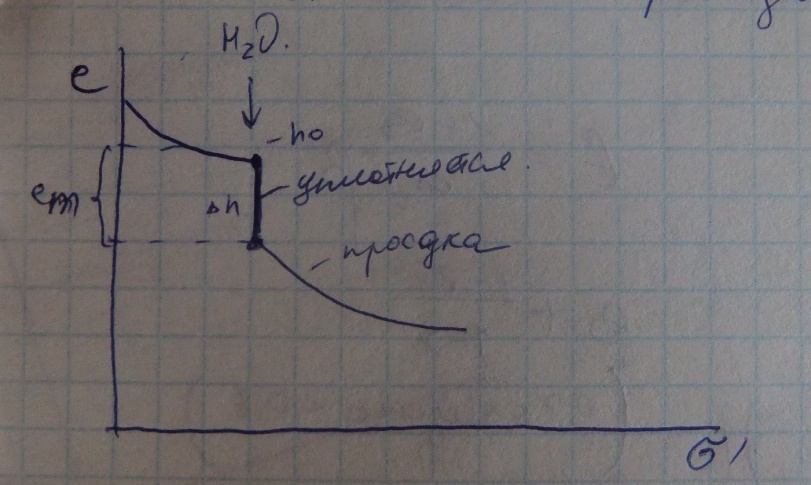 H₂O.
e
- h₀
уплотняется.
em
Δh
просадка
σ'